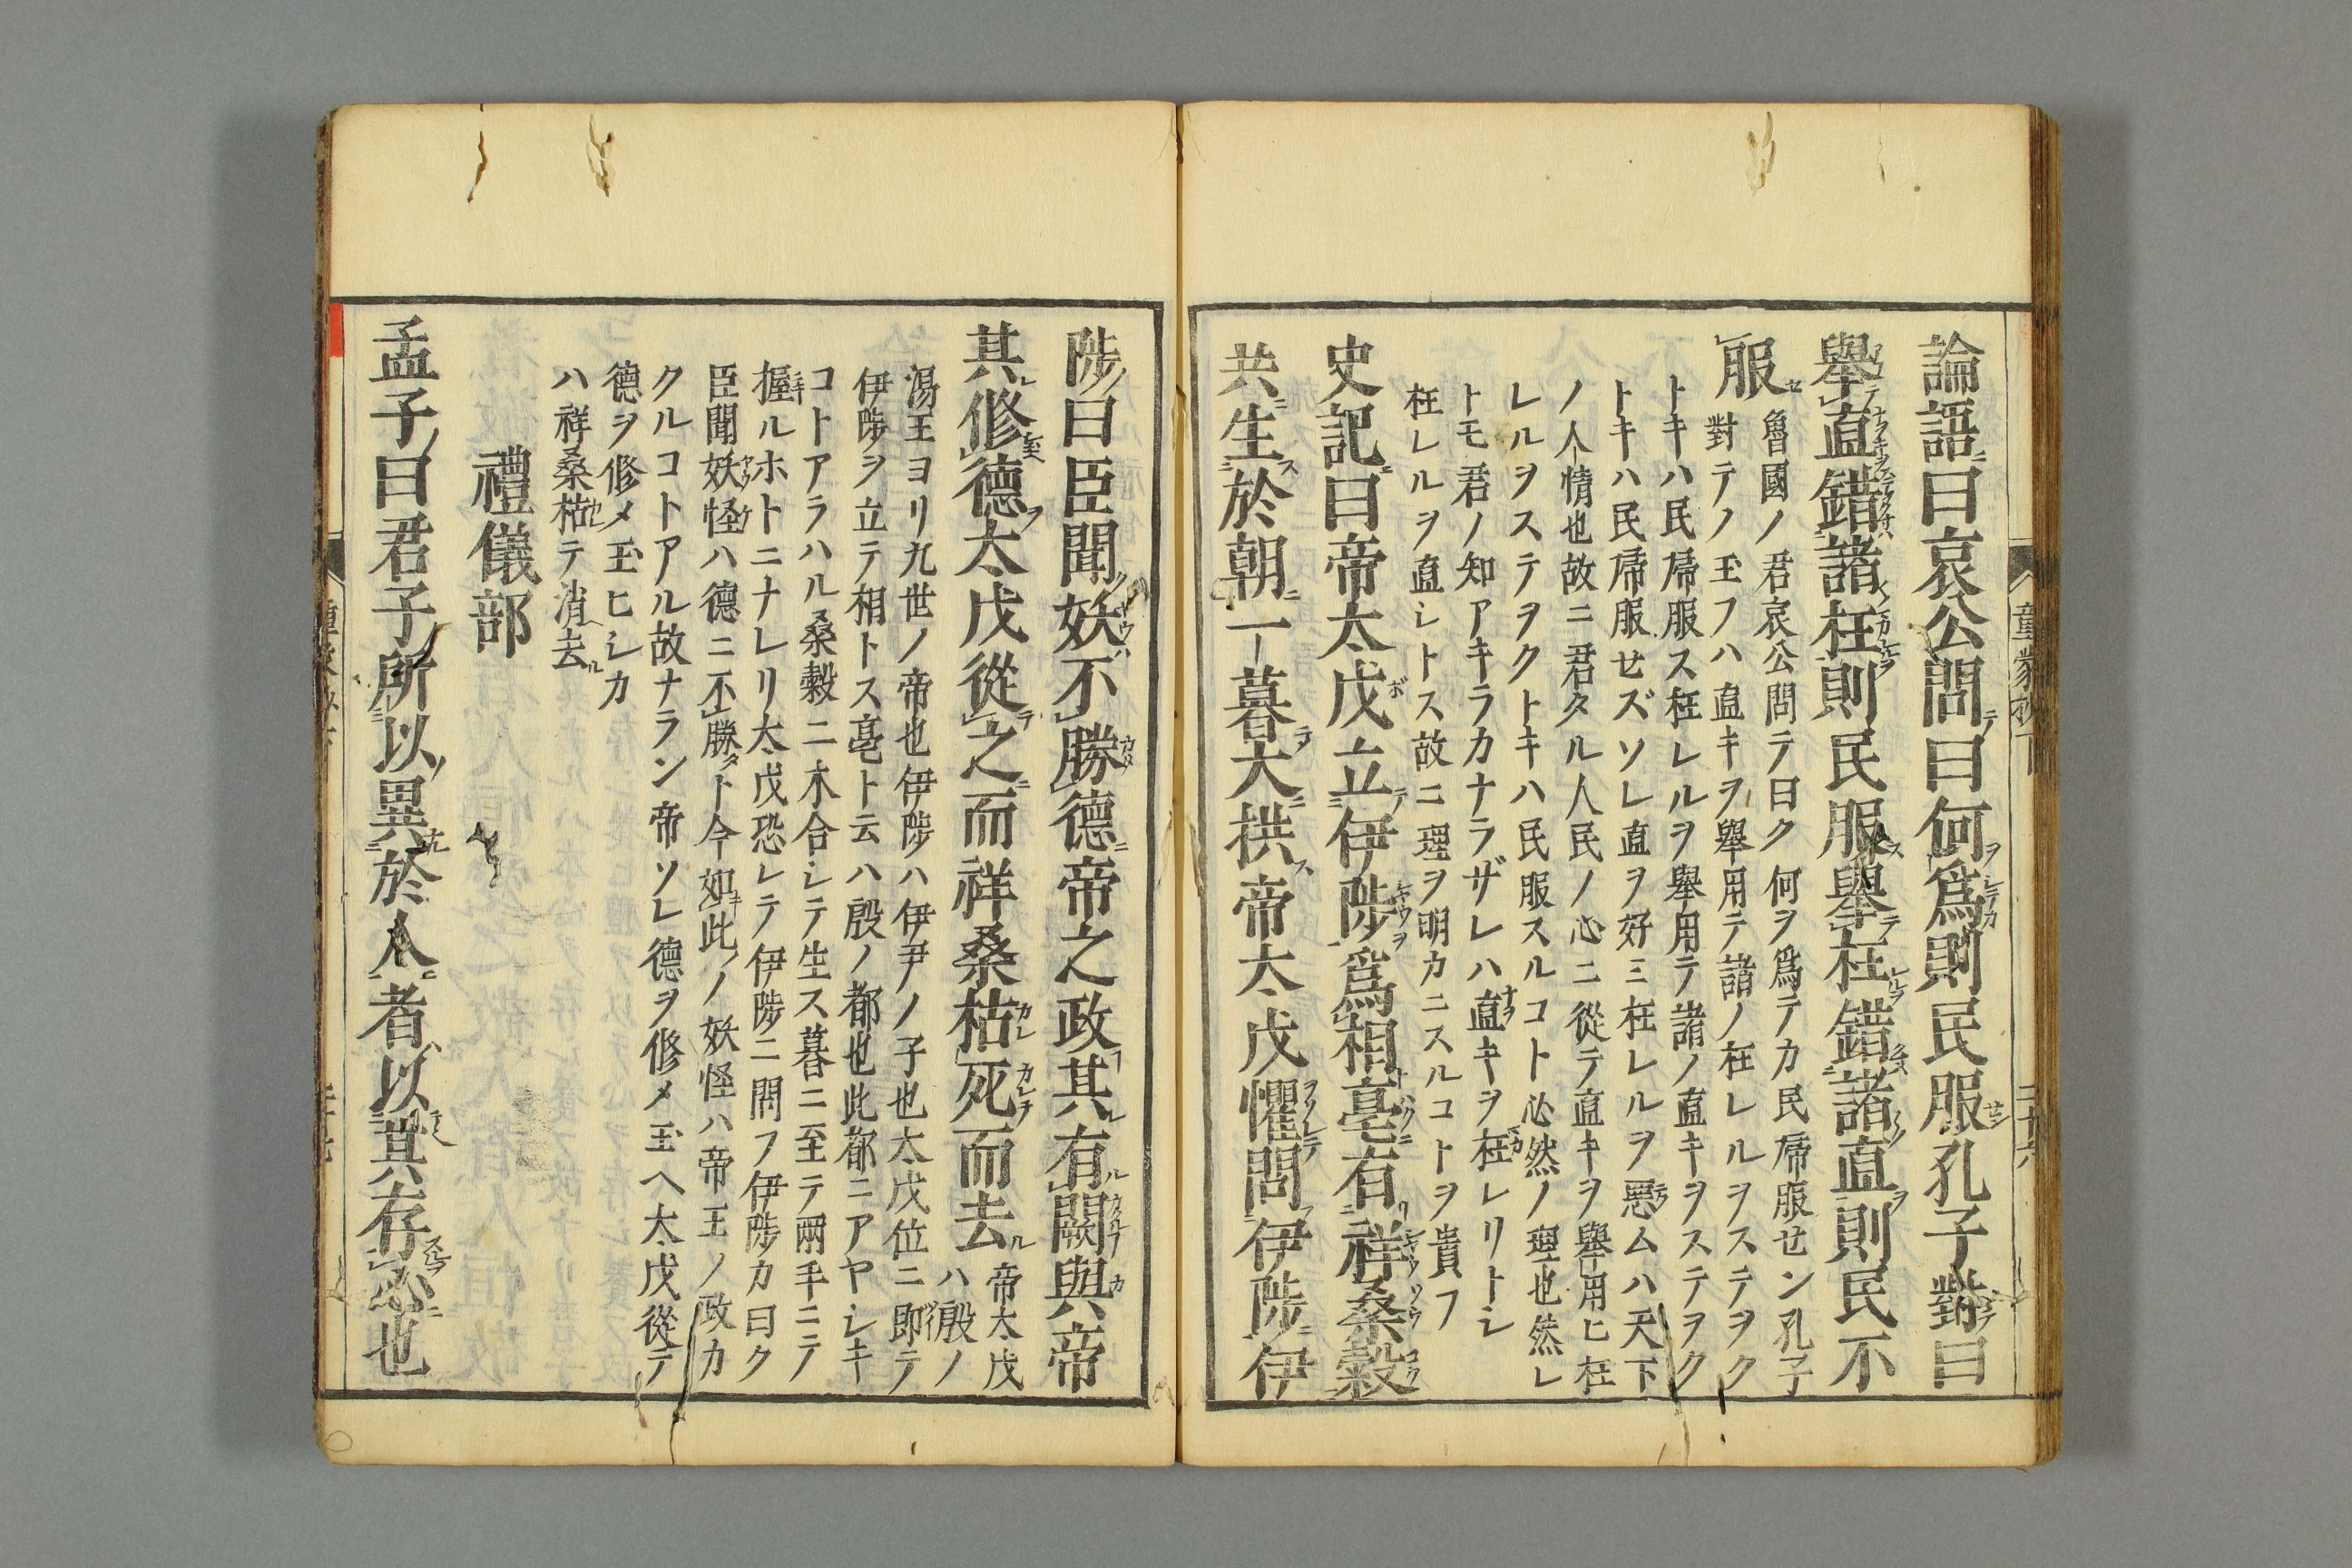 論語曰哀公問曰何爲則民服孔子對曰
舉直錯諸枉則民服舉枉錯諸直則民不
服
魯國ノ君哀公問テ曰ク何ヲ爲テカ民帰服セン孔子
對テノ玉フハ直キヲ舉用テ諸ノ枉レルヲステヲク
トキハ民帰服ス枉レルヲ舉用テ諸ノ直キヲステヲク
トキハ民帰服せズソレ直ヲ好ミ枉レルヲ悪ムハ天下
ノ人情也故ニ君タル人民ノ心ニ從テ直キヲ舉用ヒ枉
レルヲステヲクトキハ民服スルコト必然ノ理也然レ
トモ君ノ知アキラカナラザレハ直キヲ枉レリトシ
枉レルヲ直シトス故ニ理ヲ明カニスルコトヲ貴フ
史記曰帝太戊立伊陟爲相亳有祥桑穀
共生於朝一暮大拱帝太戊懼問伊陟伊
童蒙抄下
二十六
陟曰臣聞妖不勝德帝之政其有闕與帝
其修德太戊從之而祥桑枯死而去
帝太戊
ハ殷ノ
湯王ヨリ九世ノ帝也伊陟ハ伊尹ノ子也太戊位ニ即テ
伊陟ヲ立テ相トス亳ト云ハ殷ノ都也此都ニアヤシキ
コトアラハル桑穀二木合シテ生ス暮ニ至テ兩手ニテ
握ルホトニナレリ太戊恐レテ伊陟ニ問フ伊陟カ曰ク
臣聞妖怪ハ德ニ不勝ト今如此ノ妖怪ハ帝王ノ政カ
クルコトアル故ナラン帝ソレ德ヲ修メ玉ヘ太戊從テ
德ヲ修メ玉ヒシカ
ハ祥桑枯テ消去
禮儀部
孟子曰君子所以異於人者以其存心也